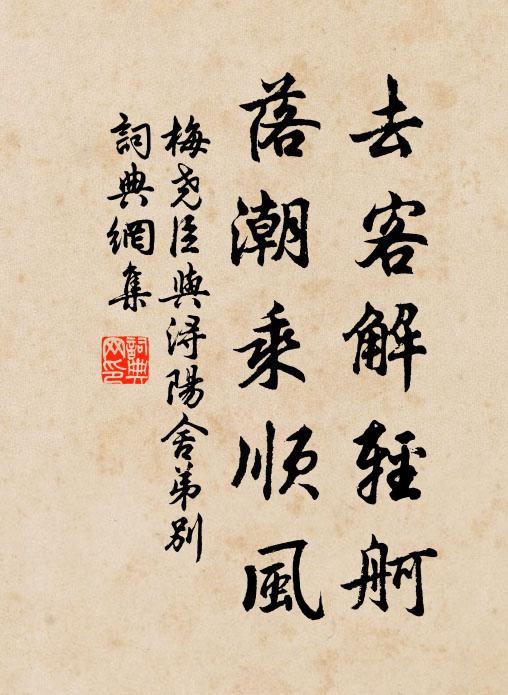 去客解輕舸
落潮乘順風
梅尧臣與浔陽舍弟别
詞典網集
詞典网印